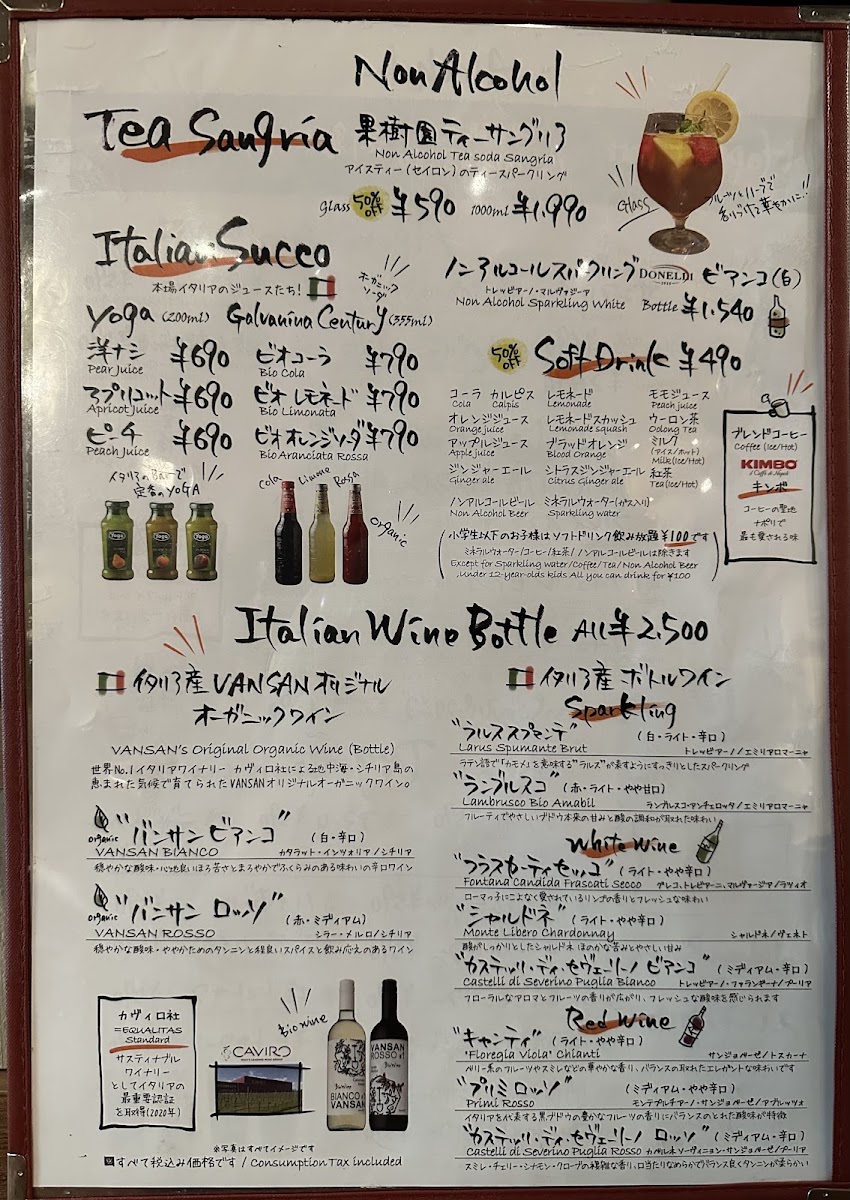 Non Alcohol
Tea Sangria 果樹園ティーサングリア
Non Alcohol Tea soda Sangria
アイスティー(セイロン)のティースパークリング
Glass 50%OFF ¥590 1000ml ¥1,990
Glass
フルーツとハーブで
香りづけて華やかに!!
Italian Succo
本場イタリアのジュースたち!
オーガニック
ソーダ
yoga (200ml) Galvanina Century (355ml)
洋ナシ ¥690 ビオコーラ ¥790
Pear Juice Bio Cola
アプリコット ¥690 ビオ レモネード ¥790
Apricot Juice Bio Limonata
ピーチ ¥690 ビオ オレンジソーダ ¥790
Peach Juice Bio Aranciata Rossa
イタリアのBarで
定番のYOGA
Cola Limone Rossa
organic
ノンアルコールスパークリング DONELLI ビアンコ(白)
トレッビアーノ・マルヴァジーア
Non Alcohol Sparkling White Bottle ¥1,540
50%OFF Soft Drink ¥490
コーラ カルピス レモネード モモジュース
Cola Calpis Lemonade Peach juice
オレンジジュース レモネードスカッシュ ウーロン茶
Orange juice Lemonade squash Oolong Tea
アップルジュース ブラッドオレンジ ミルク
(アイス/ホット)
Apple juice Blood Orange Milk (Ice/Hot)
ジンジャーエール シトラスジンジャーエール 紅茶
Ginger ale Citrus Ginger ale Tea (Ice/Hot)
ノンアルコールビール ミネラルウォーター(ガス入り)
Non Alcohol Beer Sparkling water
小学生以下のお子様はソフトドリンク飲み放題¥100です
ミネラルウォーター/コーヒー/紅茶/ノンアルコールビールは除きます
Except for Sparkling water/Coffee/Tea/Non Alcohol Beer
Under 12-year-olds kids All you can drink for ¥100
ブレンドコーヒー
Coffee (Ice/Hot)
KIMBO
il Caffè di Napoli
キンボ
コーヒーの聖地
ナポリで
最も愛される味
Italian Wine Bottle All ¥2,500
イタリア産 VANSANオリジナル
オーガニックワイン
VANSAN's Original Organic Wine (Bottle)
世界No.1イタリアワイナリー カヴィロ社による地中海・シチリア島の
恵まれた気候で育てられたVANSANオリジナルオーガニックワイン。
organic "バンサン ビアンコ" (白・辛口)
VANSAN BIANCO カタラット・インツォリア/シチリア
穏やかな酸味・心地良いほろ苦さとまろやかでふくらみのある味わいの辛口ワイン
organic "バンサン ロッソ" (赤・ミディアム)
VANSAN ROSSO シラー・メルロ/シチリア
穏やかな酸味・ややかためのタンニンと程良いスパイスと飲み応えのあるワイン
カヴィロ社
=EQUALITAS
Standard
サスティナブル
ワイナリー
としてイタリアの
最重要認証
を取得(2020年)
CAVIRO
Bio wine
BIANCO
VANSAN
VANSAN
ROSSO
※写真はすべてイメージです
すべて税込み価格です / Consumption Tax included
イタリア産 ボトルワイン
Sparkling
"ラルススプマンテ" (白・ライト・辛口)
Larus Spumante Brut トレッビアーノ/エミリアロマーニャ
ラテン語で「カモメ」を意味する"ラルス"が表すようにすっきりとしたスパークリング
"ランブルスコ" (赤・ライト・やや甘口)
Lambrusco Bio Amabil ランブルスコ・アンチェロッタ/エミリアロマーニャ
フルーティでやさしいブドウ本来の甘みと酸の調和が取れた味わい
White Wine
"フラスカーティセッコ" (ライト・やや辛口)
Fontana Candida Frascati Secco グレコ、トレビアーニ、マルヴァージア/ラツィオ
ローマっ子にこよなく愛されているリンゴの香りとフレッシュな味わい
"シャルドネ" (ライト・やや辛口)
Monte Libero Chardonnay シャルドネ/ヴェネト
酸がしっかりとしたシャルドネ ほのかな苦みとやさしい甘み
"カステッリ・ディ・セヴェリーノ ビアンコ" (ミディアム・辛口)
Castelli di Severino Puglia Bianco トレッビアーノ・ファランギーナ/プーリア
フローラルなアロマとフルーツの香りが広がり、フレッシュな酸味を感じられます
Red Wine
"キャンティ" (ライト・やや辛口)
"Floregia Viola" Chianti サンジョベーゼ/トスカーナ
ベリー系のフルーツやスミレなどの華やかな香り、バランスの取れたエレガントな味わいです
"プリミ ロッソ" (ミディアム・やや辛口)
Primi Rosso モンテプルチアーノ・サンジョベーゼ/アブルッツォ
イタリアを代表する黒ブドウの豊かなフルーツの香りにバランスのとれた酸味が特徴
"カステッリ・ディ・セヴェリーノ ロッソ" (ミディアム・辛口)
Castelli di Severino Puglia Rosso カベルネソーヴィニョン・サンジョベーゼ/プーリア
スミレ・チェリー・シナモン・クローブの複雑な香り、口当たりなめらかでバランス良くタンニンが柔らかい